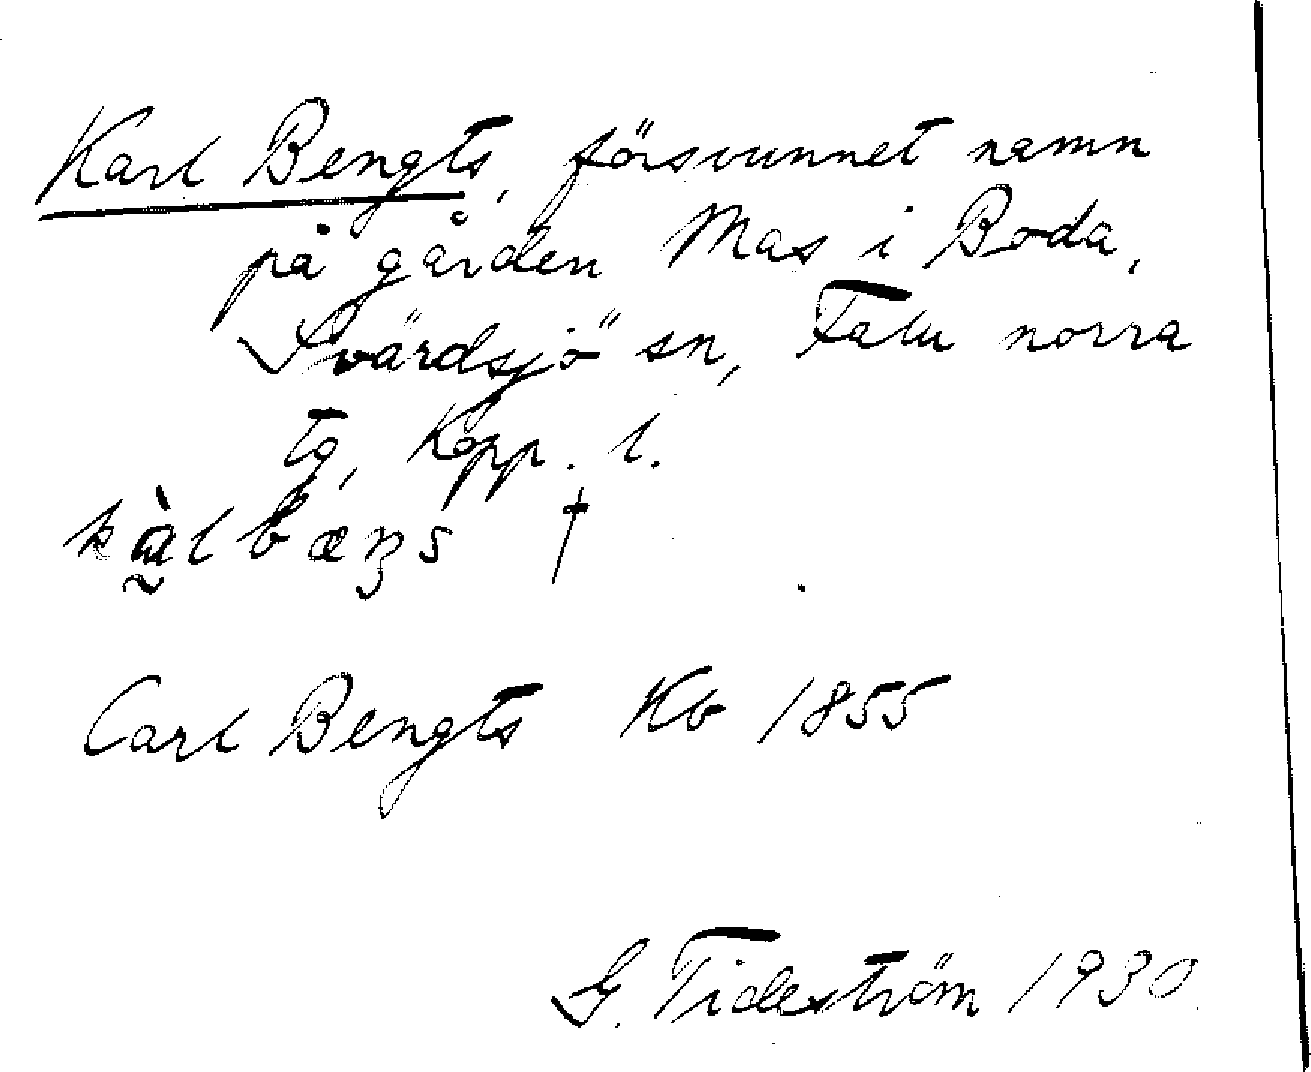 Karl Bengts, försvunnet namn
på gården Mas i Boda,
Svärdsjö sn, Falu norra
tg, Kopp. l.
Carl Bengts Kb 1855
G. Tideström 1930.